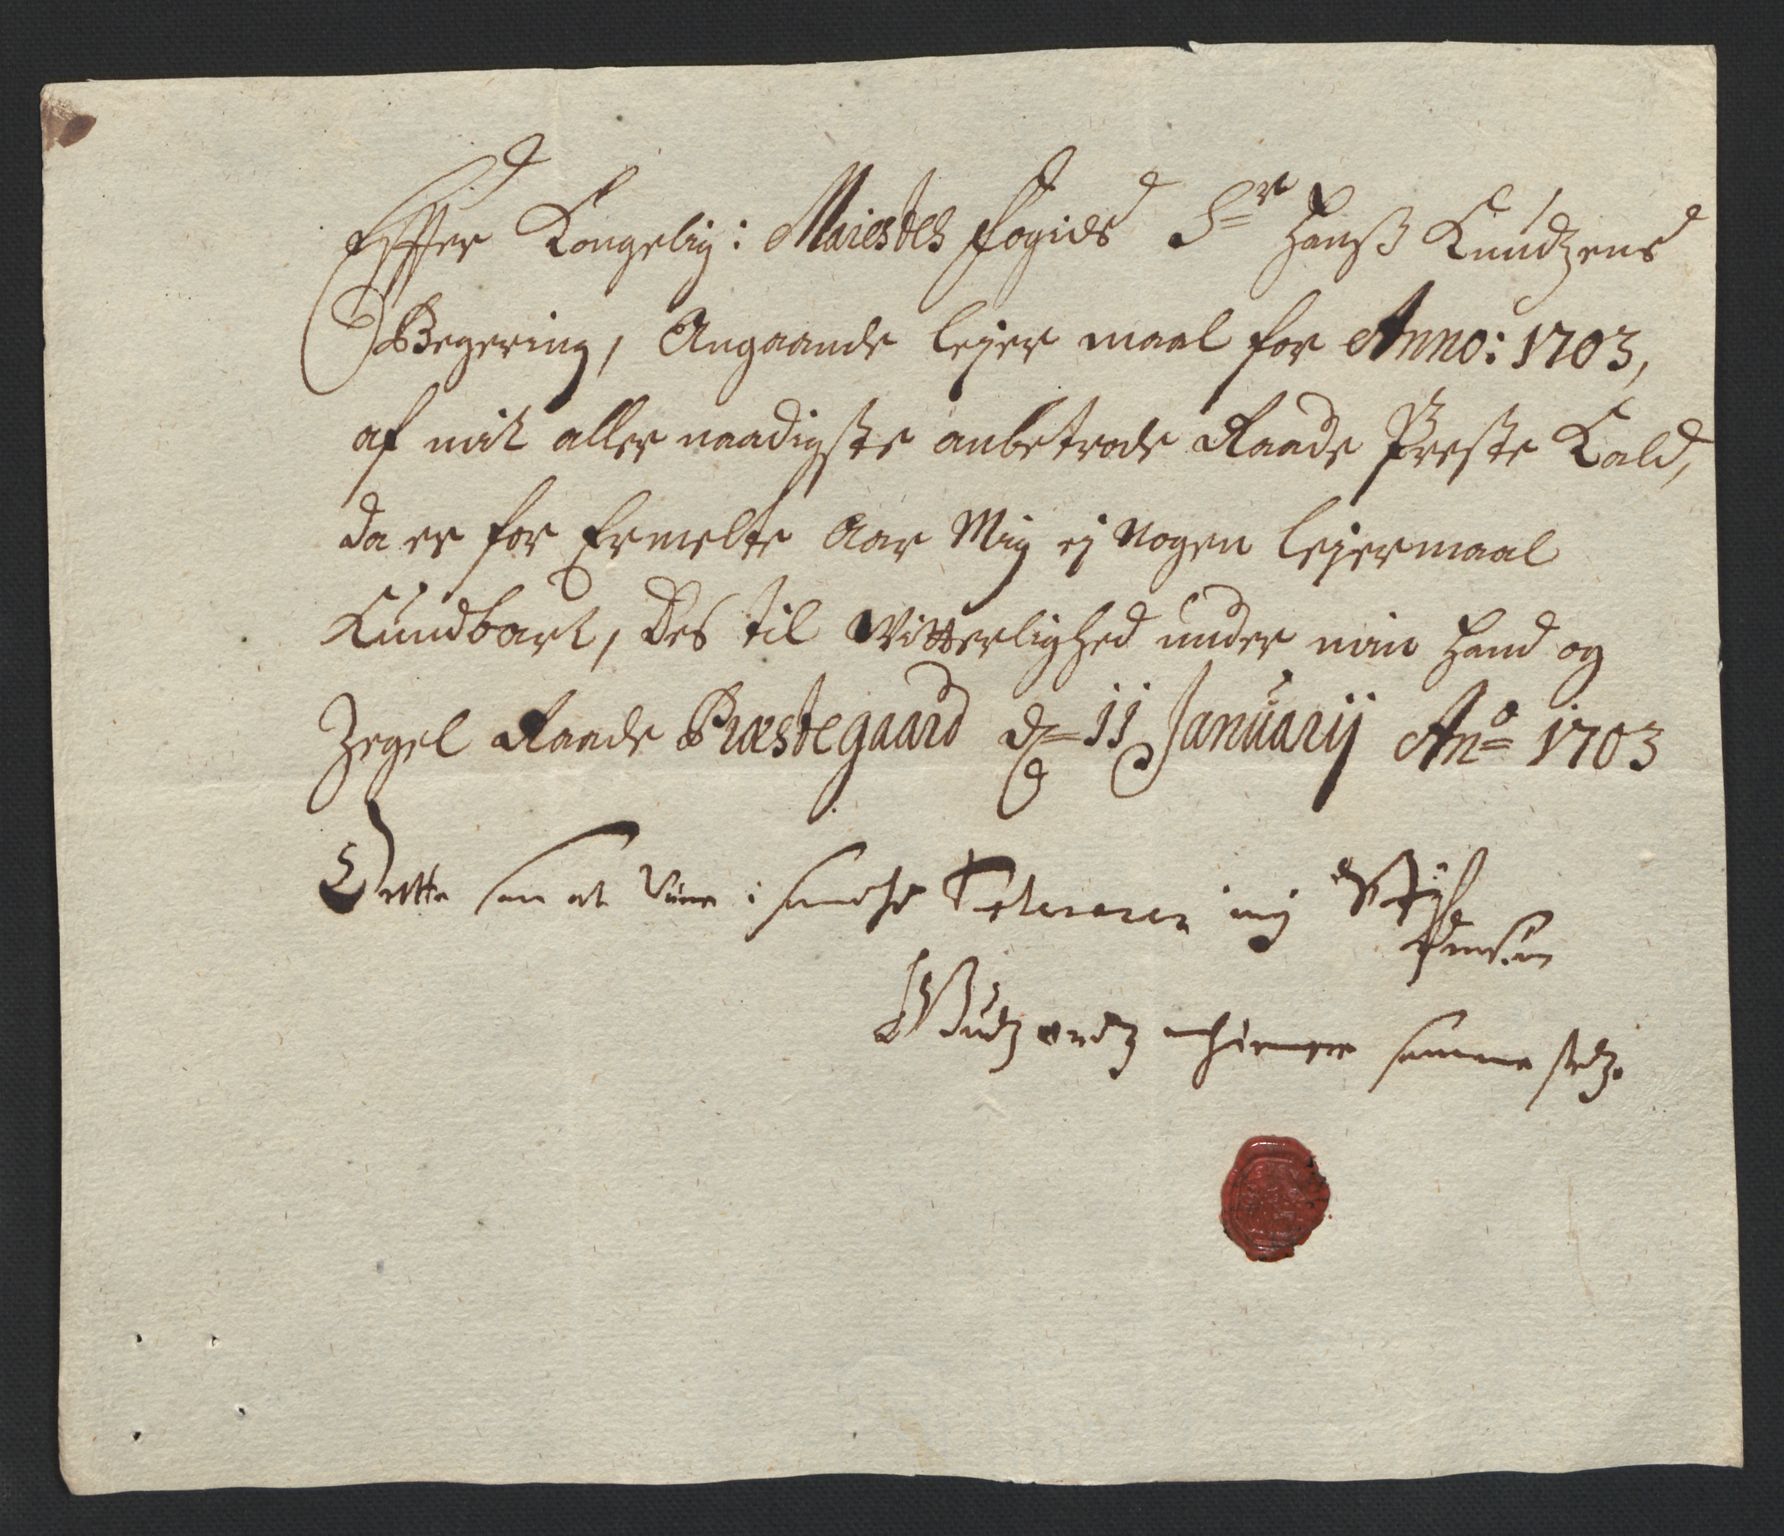 Effter Kongelig: Maiestes fogids Sr Hanß Knudzens
Begering, Angaande lejer maal for Anno: 1703,
af mit aller naadigste anbetrode Raade Preste Kald,
da er for Ermelte Aar Mig ej nogen lejermaal
Kundbart, Des til Witterlighed under min Hand og
Zegel Raade Præstegaard d 11 Januarij Ano 1703
Dette saa at være i sandhed
samme stedz.